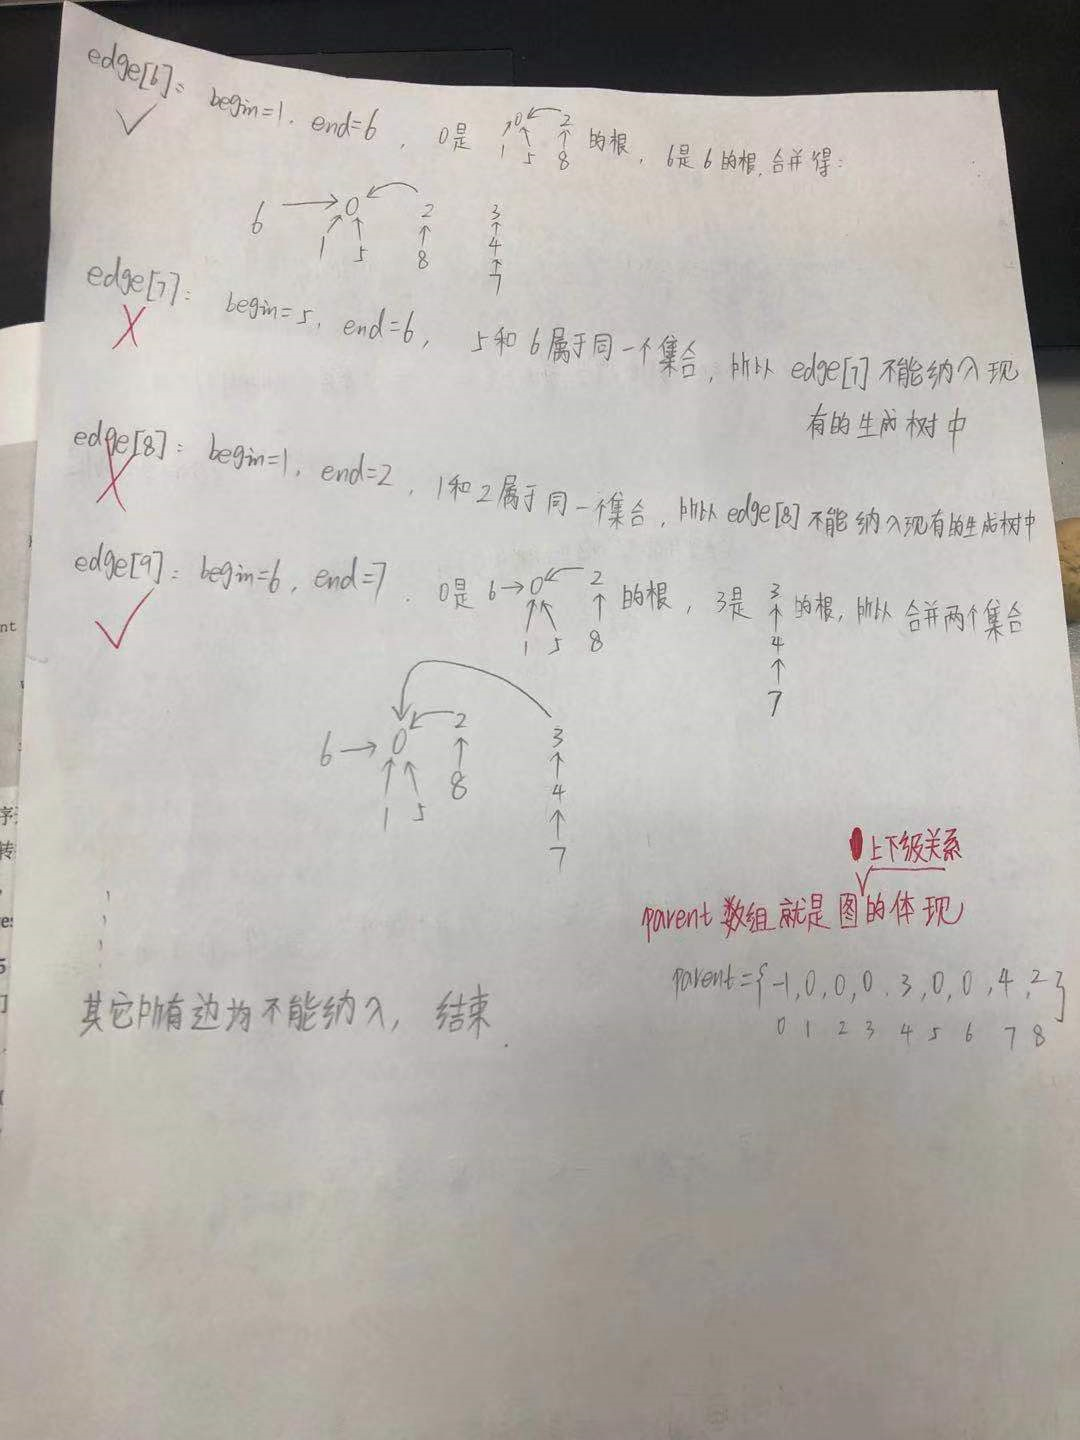 edge[6]: begin=1, end=6, 0是 0 2 的根, 6是6的根, 合并得:
1 5 8
6 0 2 3
1 5 8 4
7
edge[7]: begin=5, end=6, 5和6属于同一个集合, 所以 edge[7] 不能纳入现
有的生成树中
edge[8]: begin=1, end=2, 1和2属于同一个集合, 所以 edge[8] 不能纳入现有的生成树中
edge[9]: begin=6, end=7. 0是 6→0 2 的根, 3是 3 的根, 所以 合并两个集合
1 5 8 4
7
6→0 2 3
1 5 8 4
7
上下级关系
parent 数组就是图的体现
parent={-1,0,0,0,3,0,0,4,2}
0 1 2 3 4 5 6 7 8
其它所有边均不能纳入, 结束.
nt
序
转
es
5